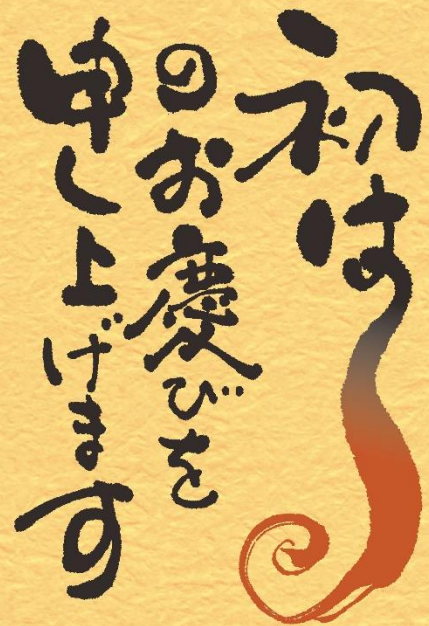 初はる
のお慶びを
申し上げます